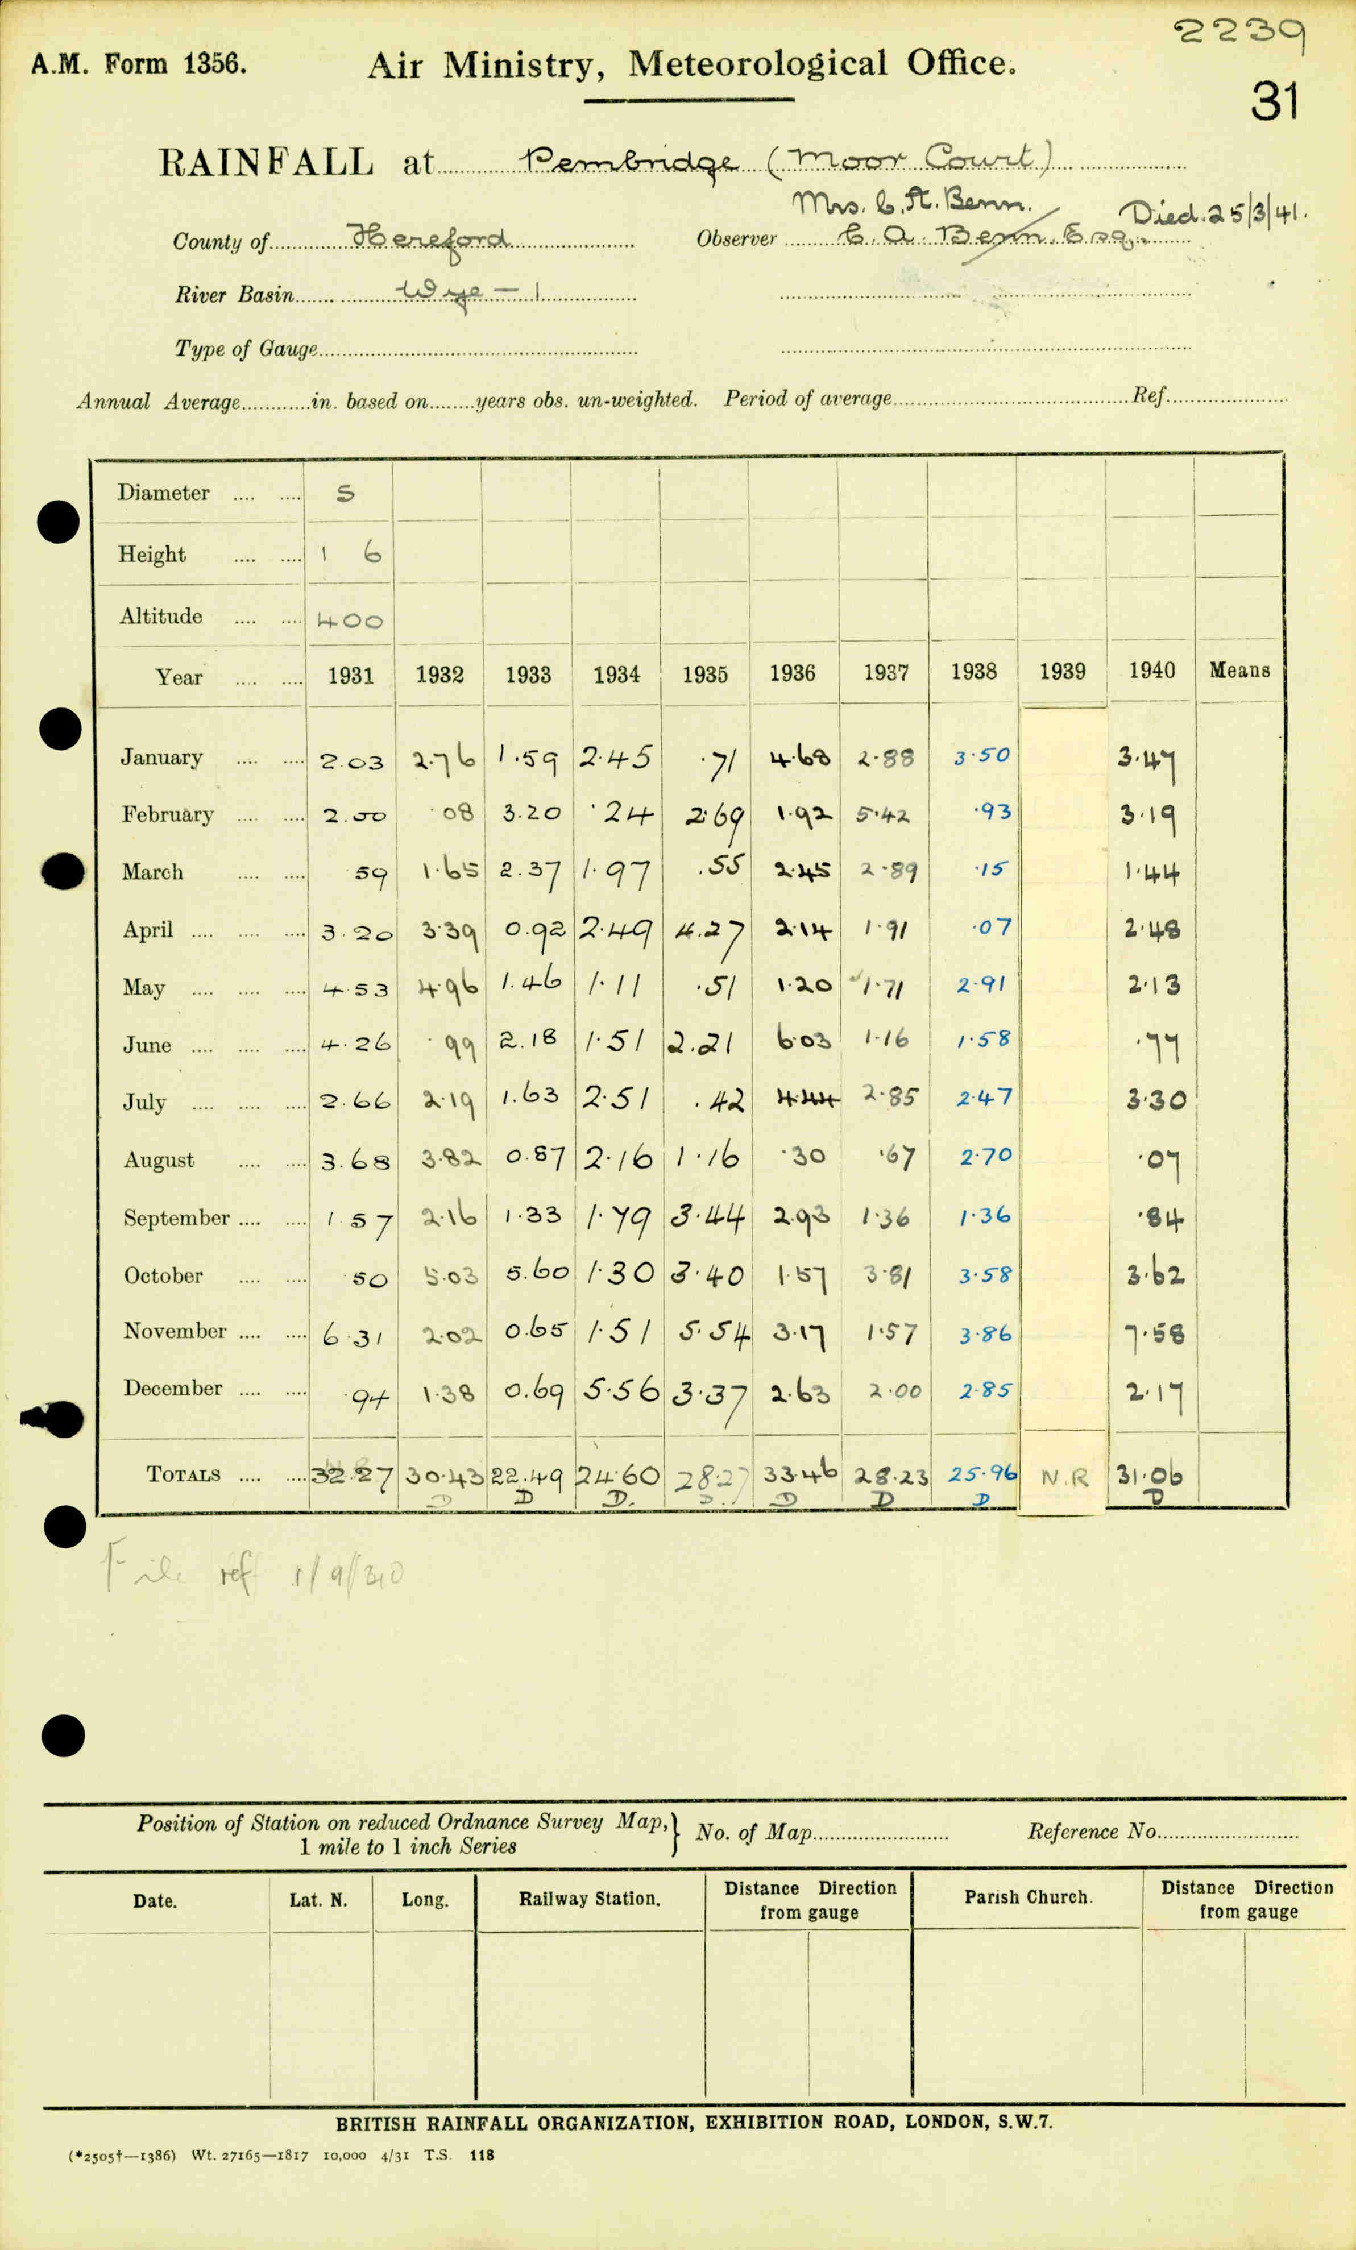 2239
A.M. Form 1356. Air Ministry, Meteorological Office.
31
RAINFALL at Pembridge (Moor Court)
Mrs. C. A. Benn. Died. 25/3/41.
County of Hereford Observer C. A. Benn. Esq.
River Basin Wye — 1
Type of Gauge
Annual Average in. based on years obs. un-weighted. Period of average Ref.
Diameter 5
Height 1 6
Altitude 400
Year 1931 1932 1933 1934 1935 1936 1937 1938 1939 1940 Means
January 2.03 2.76 1.59 2.45 .71 4.68 2.88 3.50 3.47
February 2.00 .08 3.20 .24 2.69 1.92 5.42 .93 3.19
March .59 1.65 2.37 1.97 .55 2.45 2.89 .15 1.44
April 3.20 3.39 0.92 2.49 4.27 2.14 1.91 .07 2.48
May 4.53 4.96 1.46 1.11 .51 1.20 1.71 2.91 2.13
June 4.26 .99 2.18 1.51 2.21 6.03 1.16 1.58 .77
July 2.66 2.19 1.63 2.51 .42 4.44 2.85 2.47 3.30
August 3.68 3.82 0.87 2.16 1.16 .30 .67 2.70 .07
September 1.57 2.16 1.33 1.79 3.44 2.93 1.36 1.36 .84
October .50 5.03 5.60 1.30 3.40 1.57 3.81 3.58 3.62
November 6.31 2.02 0.65 1.51 5.54 3.17 1.57 3.86 7.58
December .94 1.38 0.69 5.56 3.37 2.63 2.00 2.85 2.17
TOTALS 32.27 30.43 22.49 24.60 28.27 33.46 28.23 25.96 N.R 31.06
D D D. D. D D D D
File ref 1/9/340
Position of Station on reduced Ordnance Survey Map, } No. of Map Reference No.
1 mile to 1 inch Series
Date. Lat. N. Long. Railway Station. Distance Direction from gauge Parish Church. Distance Direction from gauge
BRITISH RAINFALL ORGANIZATION, EXHIBITION ROAD, LONDON, S.W.7.
(*2505†—1386) Wt. 27165—1817 10,000 4/31 T.S. 118